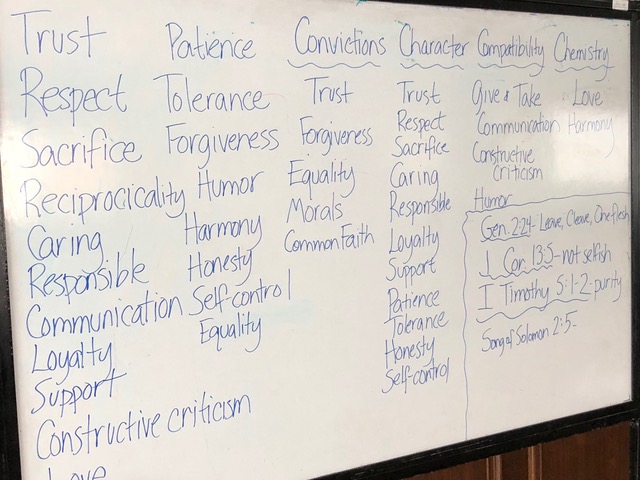 Trust
Respect
Sacrifice
Reciprocicality
Caring
Responsible
Communication
Loyalty
Support
Constructive criticism
Love
Patience
Tolerance
Forgiveness
Humor
Harmony
Honesty
Self-control
Equality
Convictions
Trust
Forgiveness
Equality
Morals
Common Faith
Character
Trust
Respect
Sacrifice
Caring
Responsible
Loyalty
Support
Patience
Tolerance
Honesty
Self-control
Compatibility
Give & Take
Communication
Constructive
Criticism
Humor
Chemistry
Love
Harmony
Gen. 2:24- Leave, Cleave, One flesh
1 Cor. 13:5-not selfish
I Timothy 5:1-2-purity
Song of Solomon 2:5-